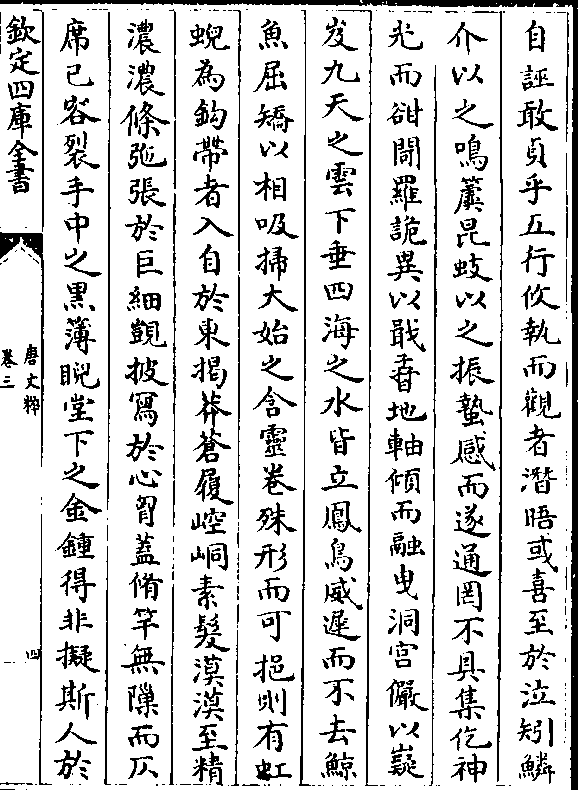 自誣敢貞乎五行攸執而觀者潛晤或喜至於泣矧鱗
介以之鳴籟昆蚑以之振蟄感而遂通罔不具集佹神
光而㟏閜羅詭異以戢孴地軸傾而融曳洞宮儼以嶷
岌九天之雲下垂四海之水皆立鳳鳥威遲而不去鯨
魚屈矯以相吸掃大始之含靈卷殊形而可挹則有虹
蜺為鈎帶者入自於東揭莽蒼履崆峒素髮漠漠至精
濃濃條弛張於巨細覬披寫於心胷蓋脩竿無隟而仄
席已容裂手中之黑簿睨堂下之金鍾得非擬斯人於
欽定四庫全書
唐文粹
卷三
四